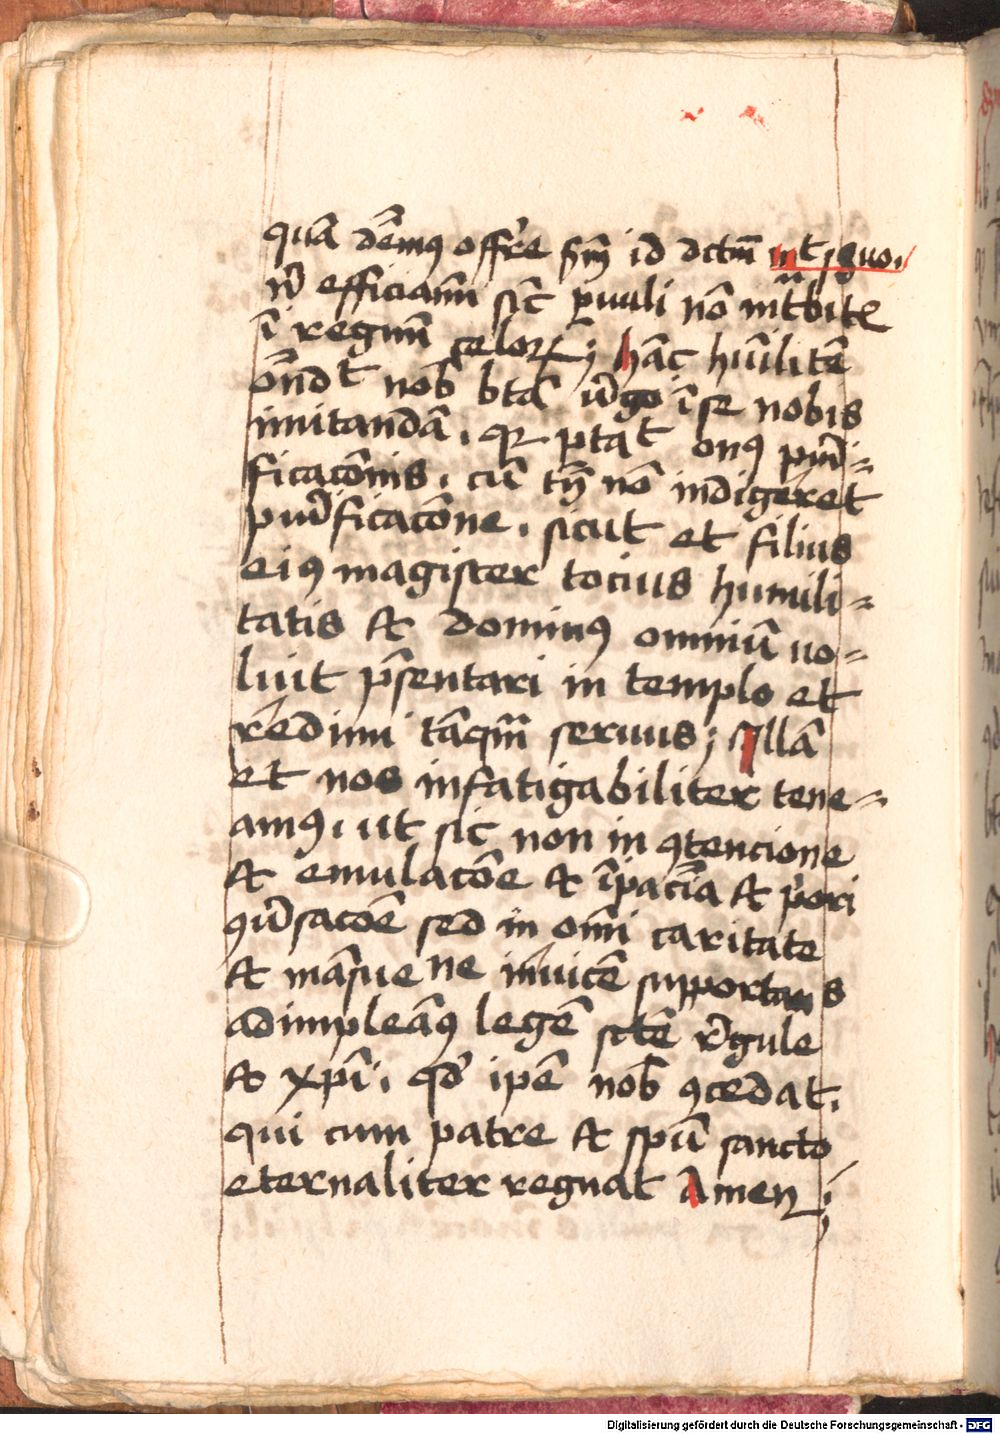 quā dēmꝯ offr̄e scd̄m id dctm̄
nͥ efficiam̄ sic̄ ꝑuuli nō int̄bitꝭ
ī regnū celoꝝ; hāc hūilitē
ōndt nob̄ bt̄a uͥgo ī se nobis
imitandā, qꝛ ptat̄ onꝯ puͥi⸗
ficacōnis, cū tn̄ nō indigeret
puͥificacōne, sicut et filius
eiꝯ magister tocius humili⸗
tatis et dominꝯ omniū uo⸗
luit p̄sentari in templo et
redimi tāqm̄ seruus; Illā
et nos infatigabiliter tene⸗
amꝯ, ut sic non in ꝯtencione
et emulacōe et īpacīa et p̄ori
ꝯuͥsacōe sed in om̄i caritate
et māsuene inuicē supportans
adimpleāꝯ legē sctē rͥgule
et xpī, qd̕ ipē nob̄ ꝯcedat,
qui cum patre et spū sancto
eternaliter regnat Amen;
Digitalisierung gefördert durch die Deutsche Forschungsgemeinschaft - DFG